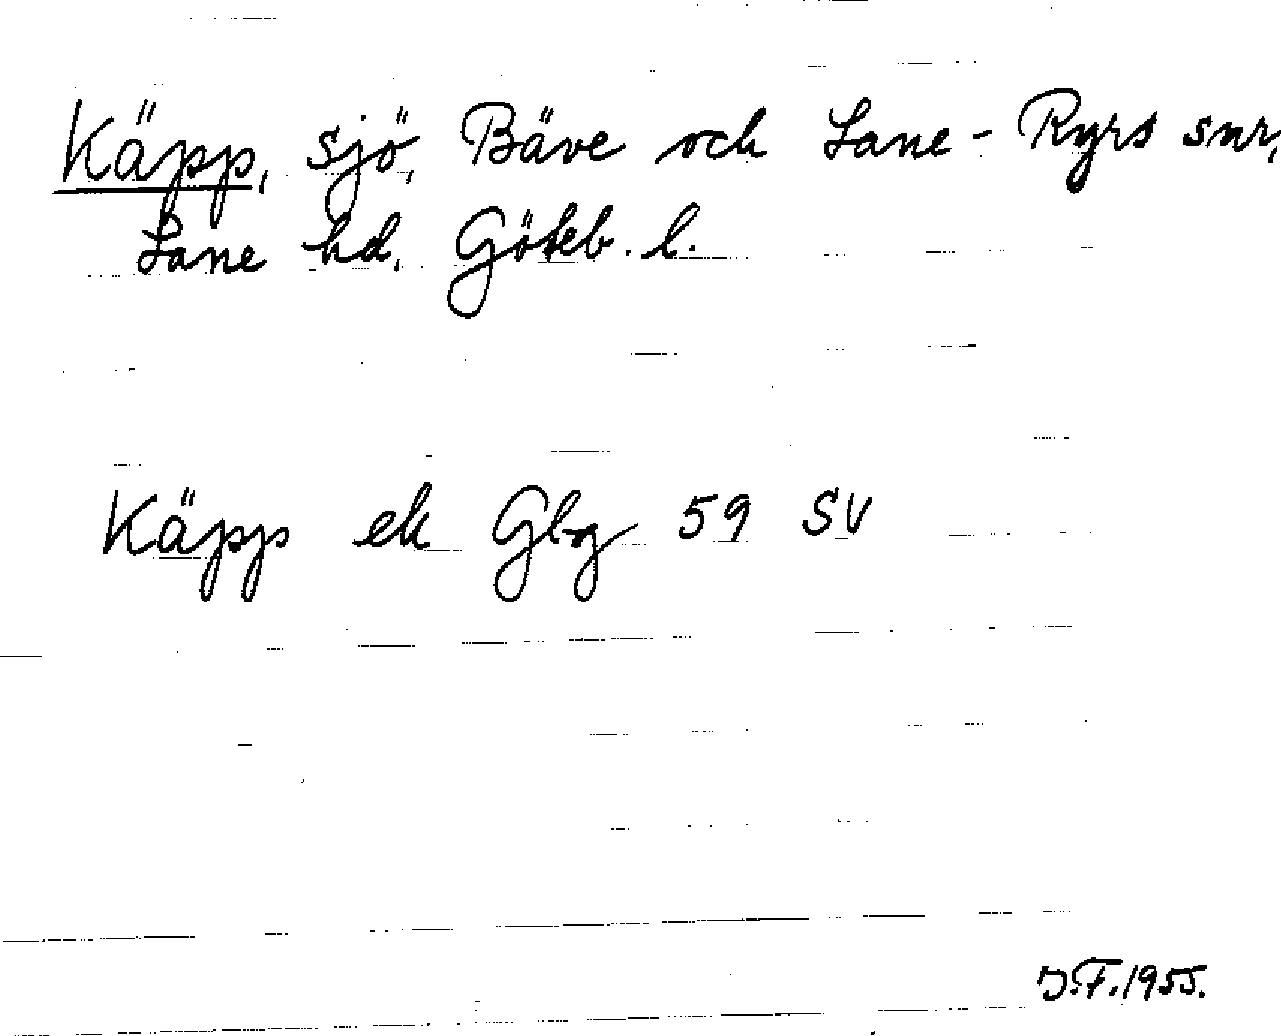 Käpp, sjö, Bäve och Lane-Ryrs snr,
Lane hd. Göteb. l.
Käpp ek Gbg 59 SV
J.F. 1955.